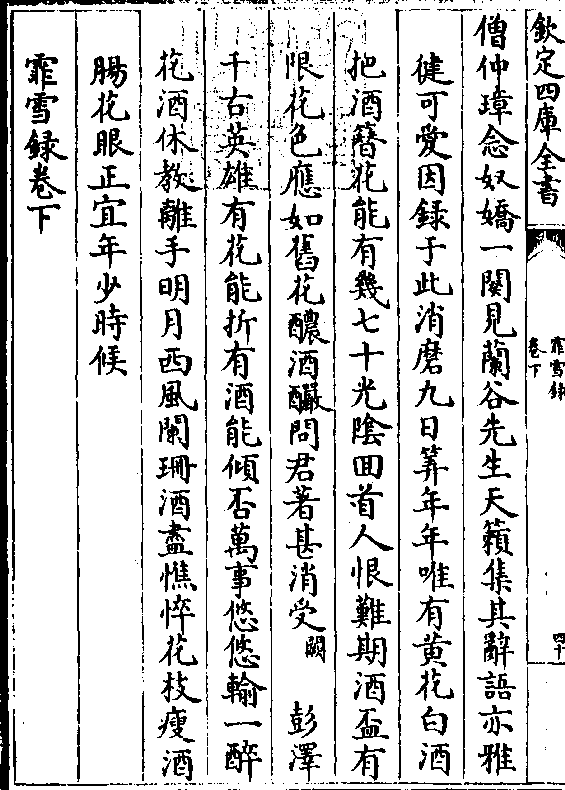 欽定四庫全書
霏雪録
卷下
四十
僧仲璋念奴嬌一闋見蘭谷先生天籟集其辭語亦雅
健可愛因録于此消磨九日筭年年唯有黄花白酒
把酒簪花能有幾七十光陰囬首人恨難期酒盃有
限花色應如舊花醲酒釅問君著甚消受闕　彭澤
千古英雄有花能折有酒能傾否萬事悠悠輸一醉
花酒休教離手明月西風闌珊酒盡憔悴花枝瘦酒
腸花眼正宜年少時候
霏雪録卷下